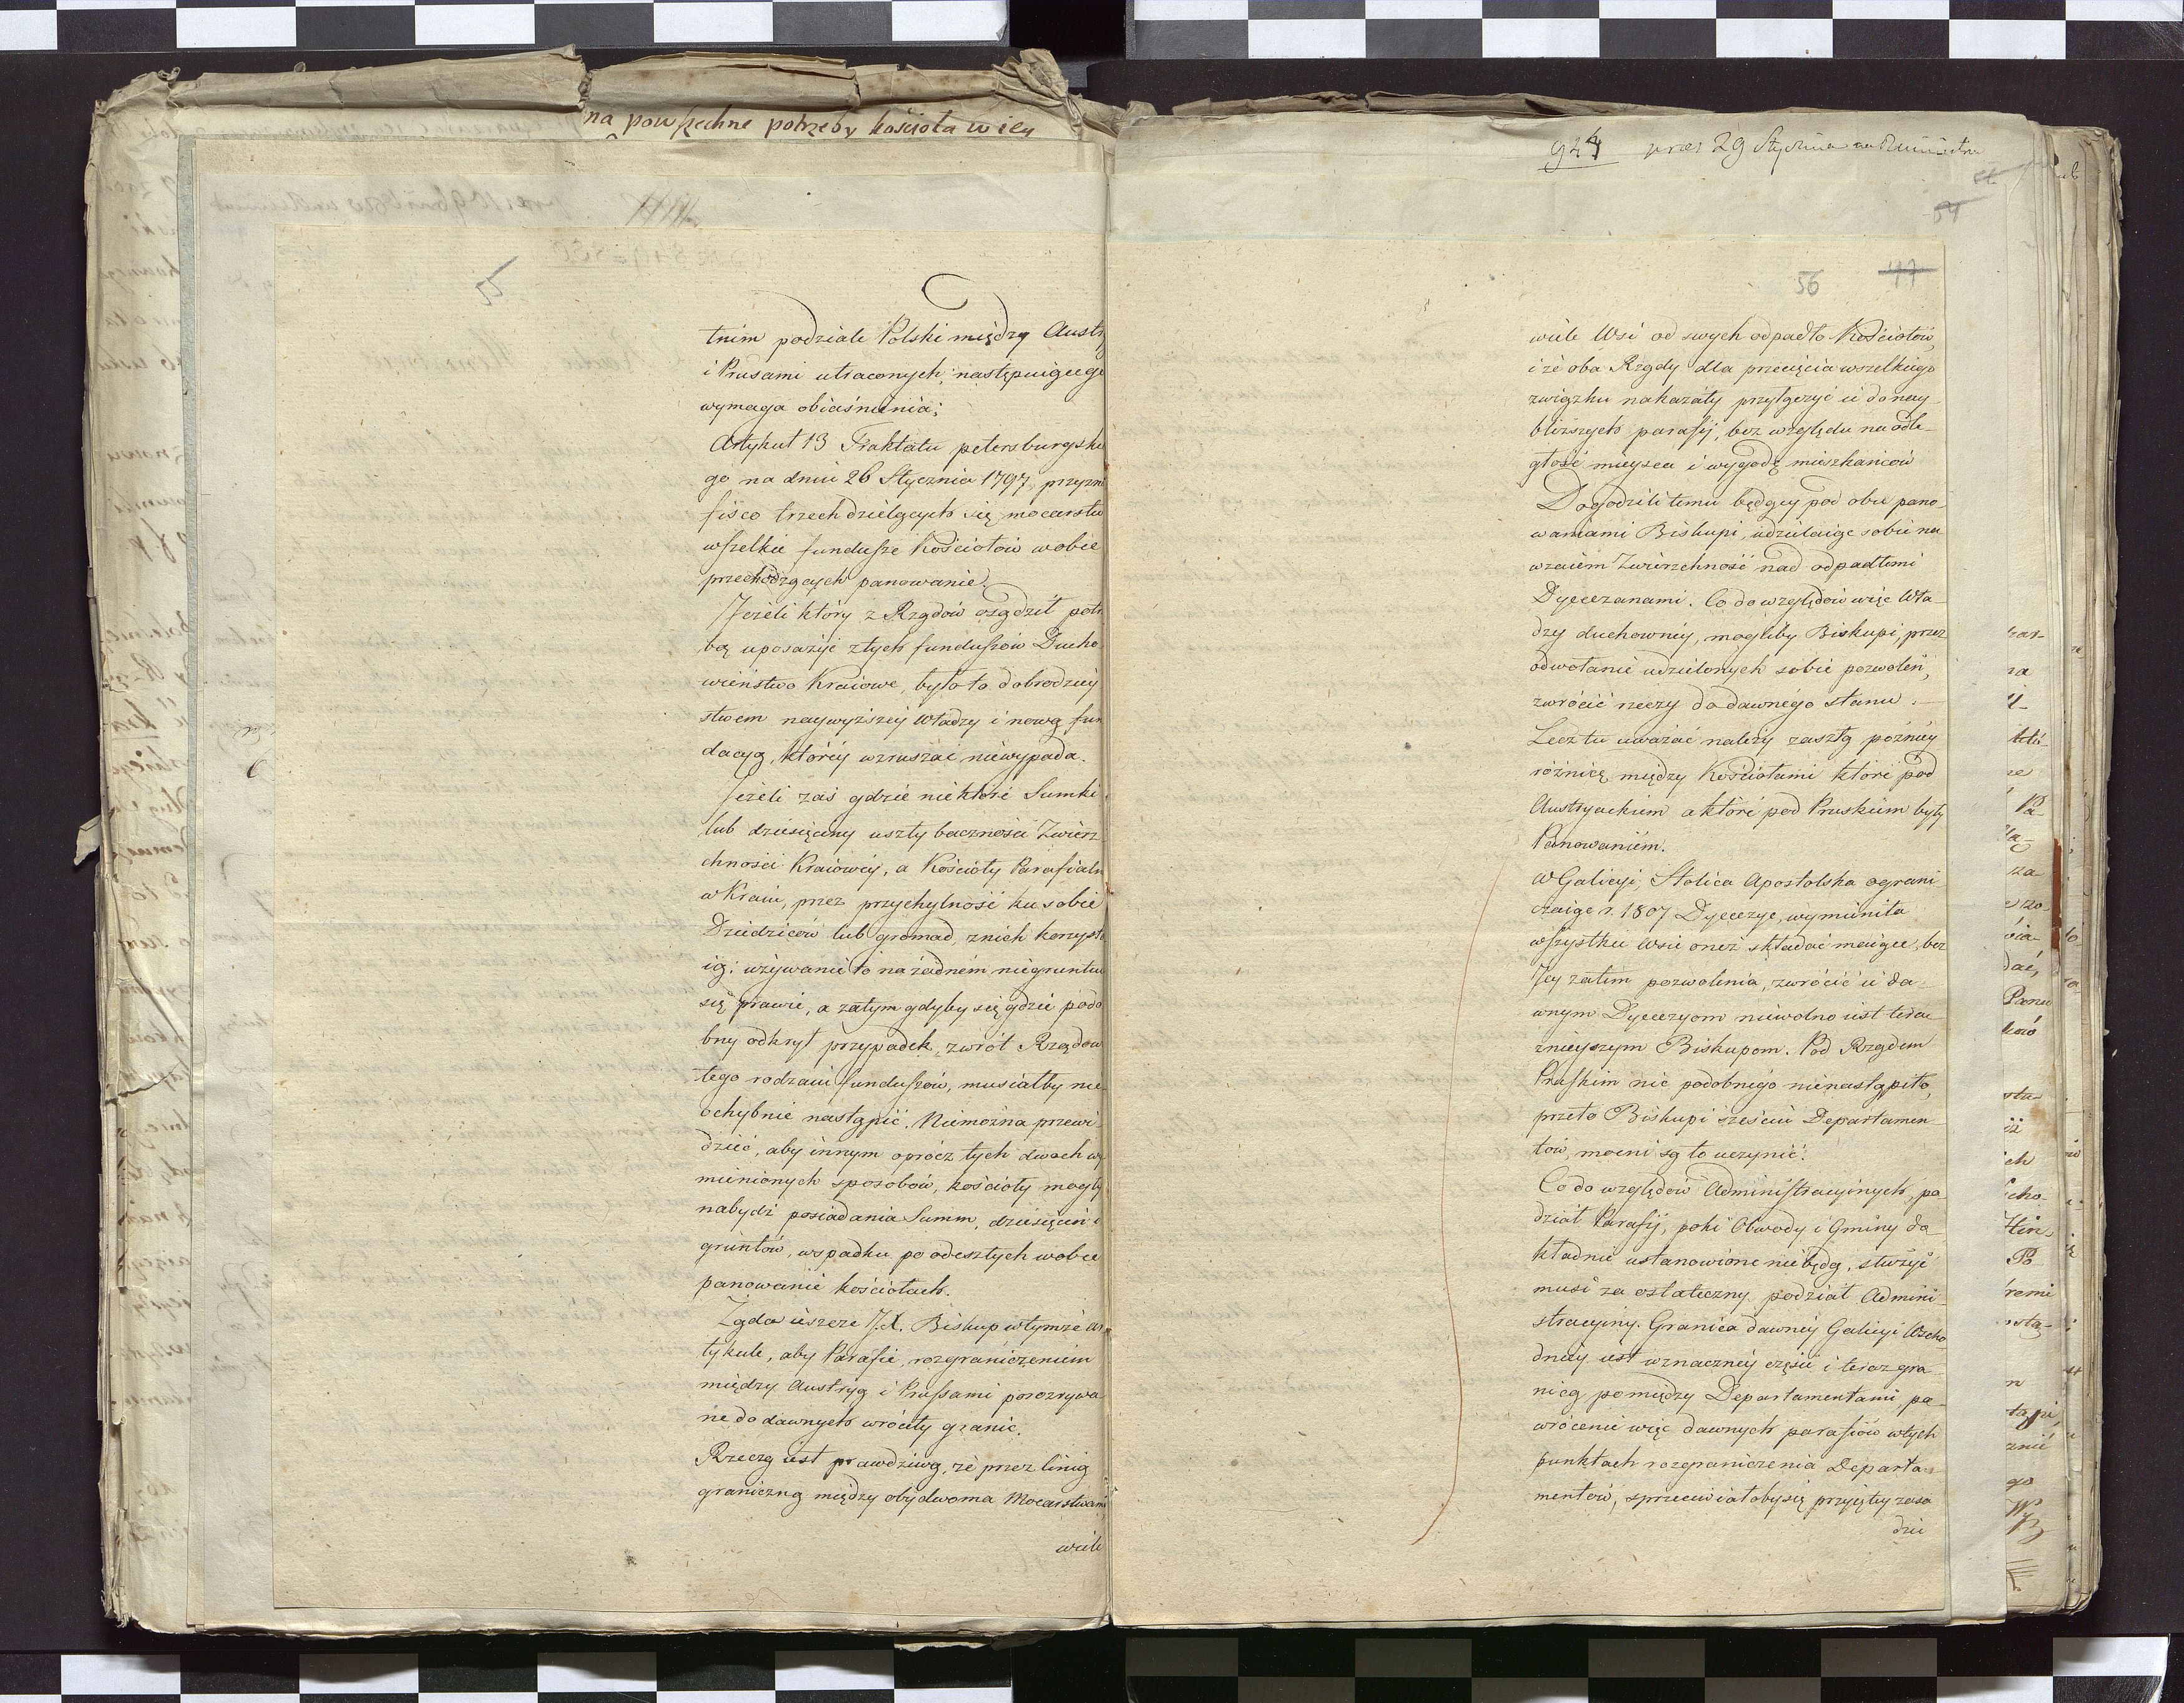 na powszechne potrzeby kościoła w icy
55
tnim podziale Polski między Austry
i Prusami utraconych, następuiącego
wymaga obiaśnienia;
Artykuł 13 Traktatu petersburgskie
go na dniu 26 Stycznia 1797, przyzna
fisco trzech dzielących się mocarstw
wszelkie fundusze Kościołów w obce
przechodzących panowanie.
Jeżeli który z Rządów osądził potrze
bą uposażyć z tych funduszów Ducho
wieństwo Kraiowe, było to dobrodziey
stwem naywyższey Władzy i nową fun
dacyą, którey wzruszać niewypada.
Jeżeli zaś gdzie niektóre Summki
lub dziesięciny uszły baczności Zwierz
chności Kraiowey, a Kościoły Parafialn
w Kraiu, przez przychylność ku sobie
Dziedziców lub gromad, z nich korzysta
ią: używanie to na żadném niegruntuie
się prawie, a zatym gdyby się gdzie podo
bny odkrył przypadek, zwrót Rządow
tego rodzaiu funduszów, musiałby nie
ochybnie nastąpić. Niemożna przewi
dzieć, aby innym oprócz tych dwóch wy
mienionych sposobów, kościoły mogły
nabydź posiadania Summ, dziesięcin i
gruntów, w spadku po odeszłych w obce
panowanie kościołach.
Żąda ieszcze J.X. Biskup w tymże ar
tykule, aby Parafie, rozgraniczeniem
między Austryą i Prussami porozrywa
ne do dawnych wróciły granic.
Rzeczą iest prawdziwą, że przez linią
graniczną między obydwoma Mocarstwami
wiele
944 præs 29 Stycznia
54
56 47
wiele Wsi od swych odpadło Kościołów,
i że oba Rządy dla przecięcia wszelkiego
związku nakazały przyłączyć ie do nay
bliższych parafij, bez względu na odle-
głość mieysca i wygodę mieszkańców
Dogodzili temu będący pod obu pano-
waniami Biskupi, udzielaiąc sobie na
wzaiem Zwierzchność nad odpadłemi
Dyecezanami. Co do względów więc Wła-
dzy duchowney, mogliby Biskupi, przez
odwołanie udzielonych sobie pozwoleń,
zwrócić rzeczy do dawnego stanu. –
Lecz tu uważać należy zaszłą późniey
różnicę między Kościołami które pod
Austryackiem a które pod Pruskiem były
Panowaniem.
W Galicyi, Stolica Apostolska ograni
czaiąc r. 1807 Dyecezye, wymieniła
wszystkie wsie oneż składać maiące, bez
Jey zatem pozwolenia, zwrócić ie da-
wnym Dyecezyom niewolno iest teraz
znieyszym Biskupom. Pod Rządem
Pruskim nic podobnego nienastąpiło,
przeto Biskupi sześciu Departamen
tów, mocni są to uczynić.
Co do względów Administracyinych, po-
dział Parafij, poki Obwody i Gminy do
kładnie ustanowione niebędą, służyć
musi za ostateczny podział Admini-
stracyiny. Granica dawney Galicyi Wscho
dniey iest w znaczney części i teraz gra-
nicą pomiędzy Departamentami, po-
wrócenie więc dawnych parafiów w tych
punktach rozgraniczenia Departa-
mentów, sprzeciwiałoby się przyiętey zasa
dzie